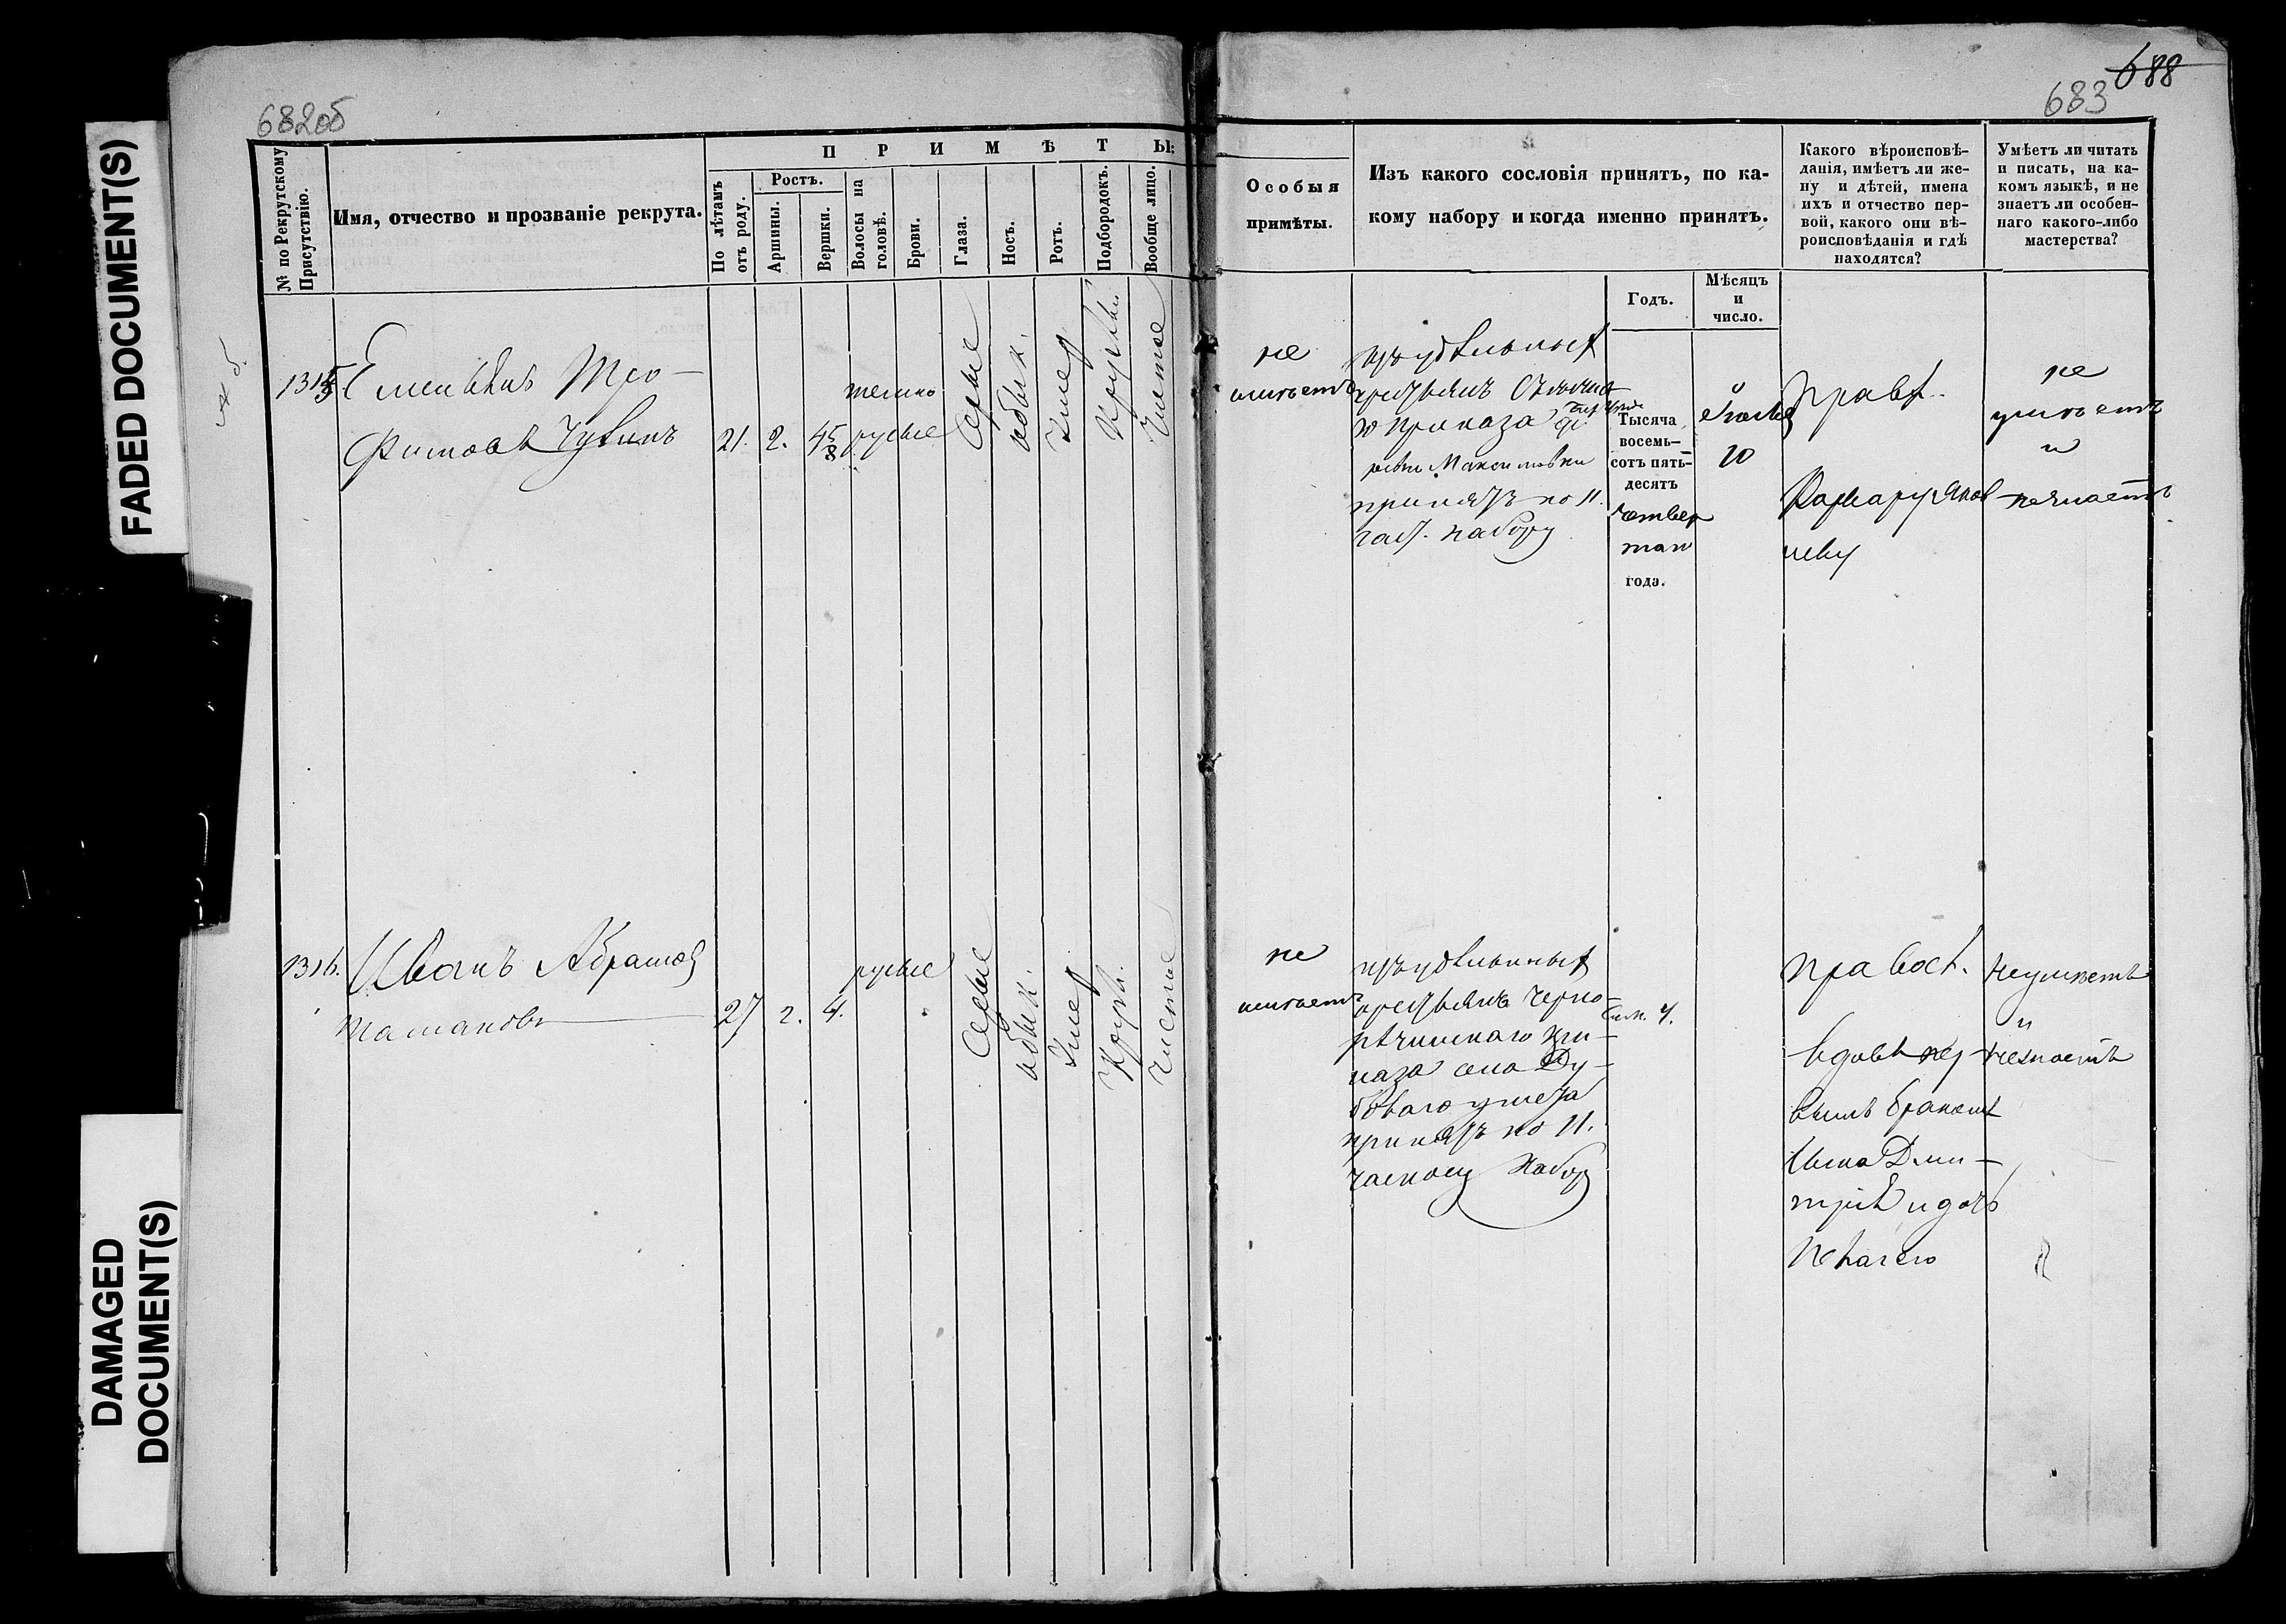 FADED DOCUMENT(S)
DAMAGED
DOCUMENT(S)
682об
№ по Рекрутскому
Присутствію.
Имя, отчество и прозваніе рекрута.
П Р И М Ѣ Т Ы:
По лѣтамъ
отъ роду.
Ростъ.
Аршины.
Вершки.
Волосы на
головѣ.
Брови.
Глаза.
Носъ.
Ротъ.
Подбородокъ.
Вообще лицо.
1315
Емельянъ Тро-
фимовъ
21.
2.
4 5/8
темно
русые
Серые
обык.
Умер
Кругл.
Чистое
1316.
Иванъ Абрамов
27
2.
4.
русые
Серые
обык.
Умер
Кругл.
Чистое
688
683
Особыя
примѣты.
Изъ какого сословія принятъ, по ка-
кому набору и когда именно принятъ.
Годъ.
Мѣсяцъ
и
число.
Какого вѣроисповѣ-
данія, имѣетъ ли же-
ну и дѣтей, имена
ихъ и отчество пер-
вой, какого они вѣ-
роисповѣданія и гдѣ
находятся?
Умѣетъ ли читать
и писать, на ка-
комъ языкѣ, и не
знаетъ ли особен-
наго какого-либо
мастерства?
не
имѣетъ
изъ удѣльныхъ
крестьянъ
приказа
принятъ по 11.
част. набору
Тысяча
восемь-
сотъ пять-
десятъ
четвер
таго
года.
10
Правос.
не
умѣетъ
и
незнаетъ
не
имѣетъ
изъ удѣльныхъ
крестьянъ Черно-
рѣчинскаго при-
каза села Ду-
боваго умета
принятъ по 11.
частному набор
4.
Правосл.
вдовъ пер-
вымъ бракомъ
сына Дми-
трія и дочь
Пелагею
неумѣетъ
и
незнаетъ